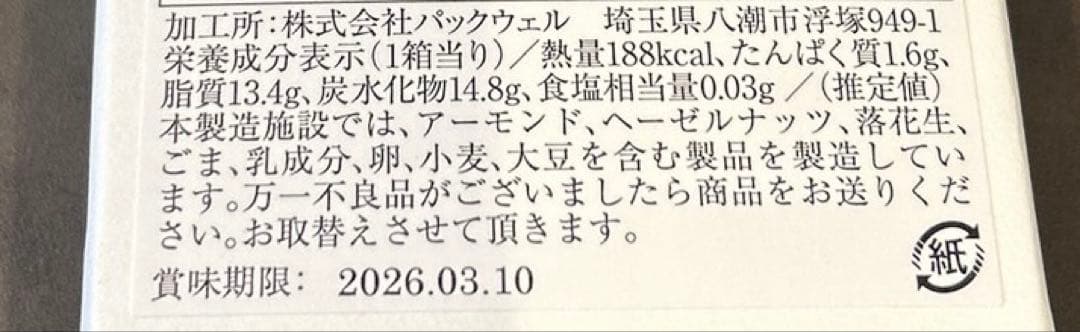 加工所:株式会社パックウェル　埼玉県八潮市浮塚949-1
栄養成分表示(1箱当り)／熱量188kcal、たんぱく質1.6g、
脂質13.4g、炭水化物14.8g、食塩相当量0.03g ／(推定値)
本製造施設では、アーモンド、ヘーゼルナッツ、落花生、
ごま、乳成分、卵、小麦、大豆を含む製品を製造してい
ます。万一不良品がございましたら商品をお送りくだ
さい。お取替えさせて頂きます。
紙
賞味期限: 2026.03.10